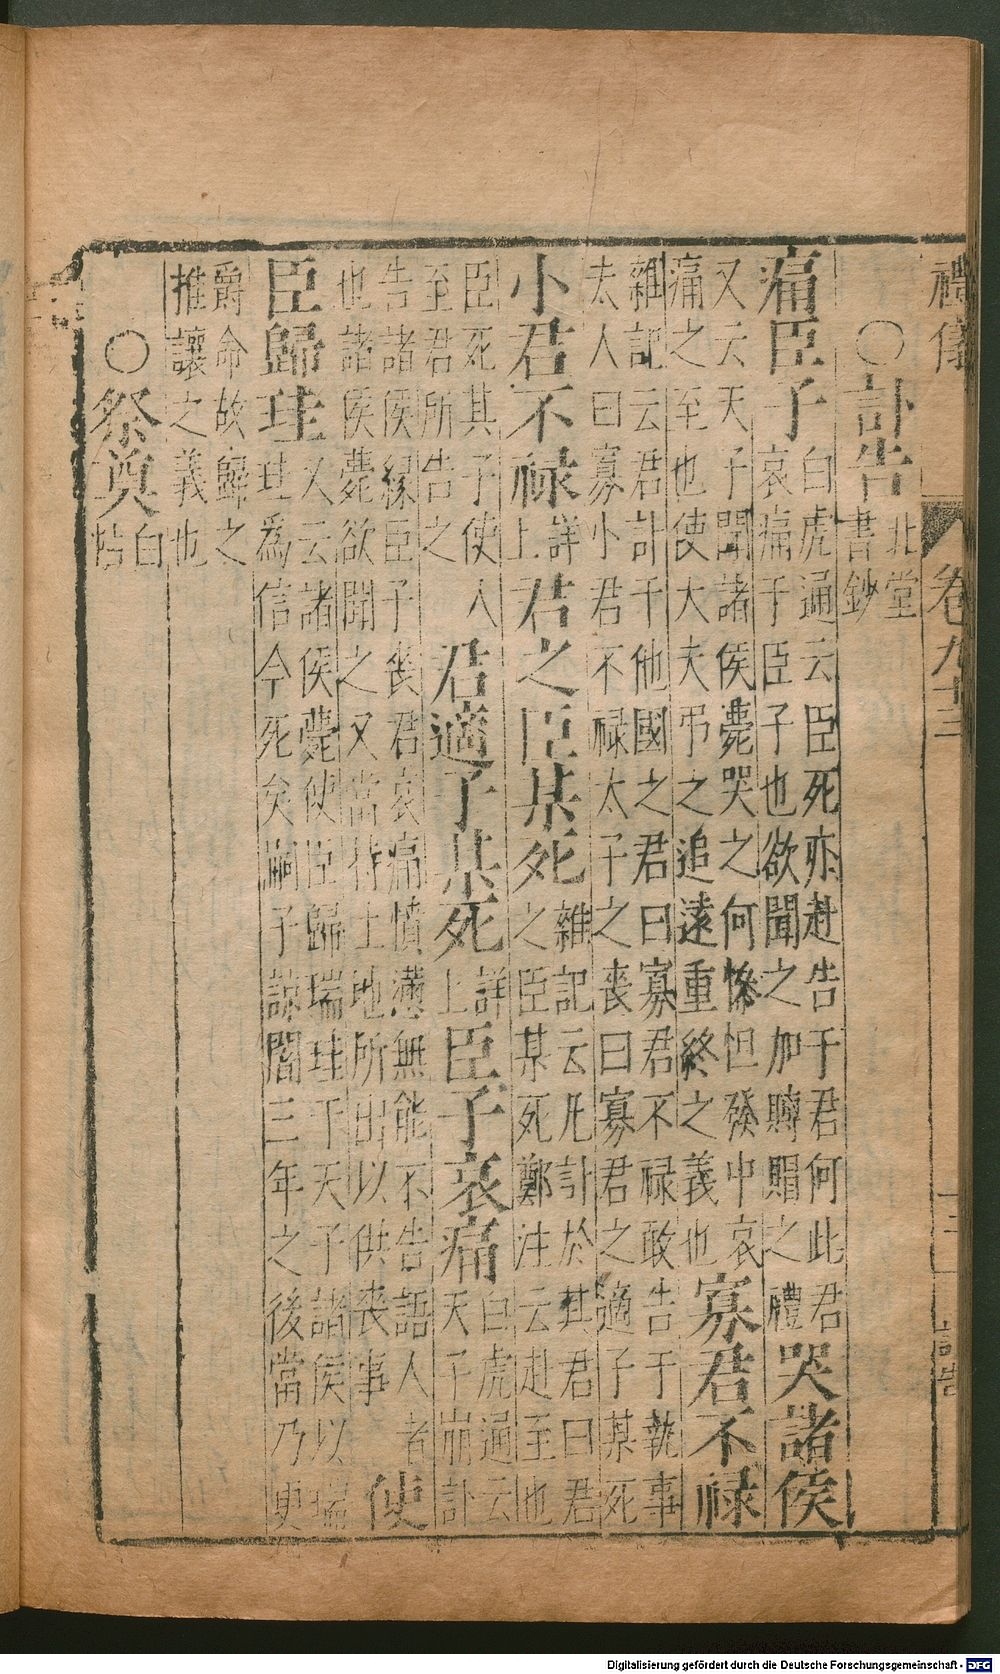 禮儀 卷九十三 十三 訃告
○訃告 北堂書鈔
痛臣子 白虎通云臣死亦赴告于君何此君哀痛于臣子也欲聞之加賻賵之禮 哭諸侯
又云天子聞諸侯薨哭之何慘怛發中哀痛之至也使大夫弔之追遠重終之義也 寡君不祿
雜記云君訃于他國之君曰寡君不祿敢告于執事太人曰寡小君不祿太子之喪曰寡君之適子某死
小君不祿 詳上 君之臣某死 雜記云凡訃於其君曰君之臣某死鄭注云赴至也
臣死其子使人至君所告之 君適子某死 詳上 臣子哀痛 白虎通云天子崩訃
告諸侯緣臣子喪君哀痛憤懣無能不告語人者也諸侯薨欲聞之又當持土地所出以供喪事 使
臣歸珪 又云諸侯薨使臣歸瑞珪于天子諸侯以瑞珪為信今死矣嗣子諒闇三年之後當乃更
爵命故歸之推讓之義也
○祭奠 白帖
Digitalisierung gefördert durch die Deutsche Forschungsgemeinschaft - DFG